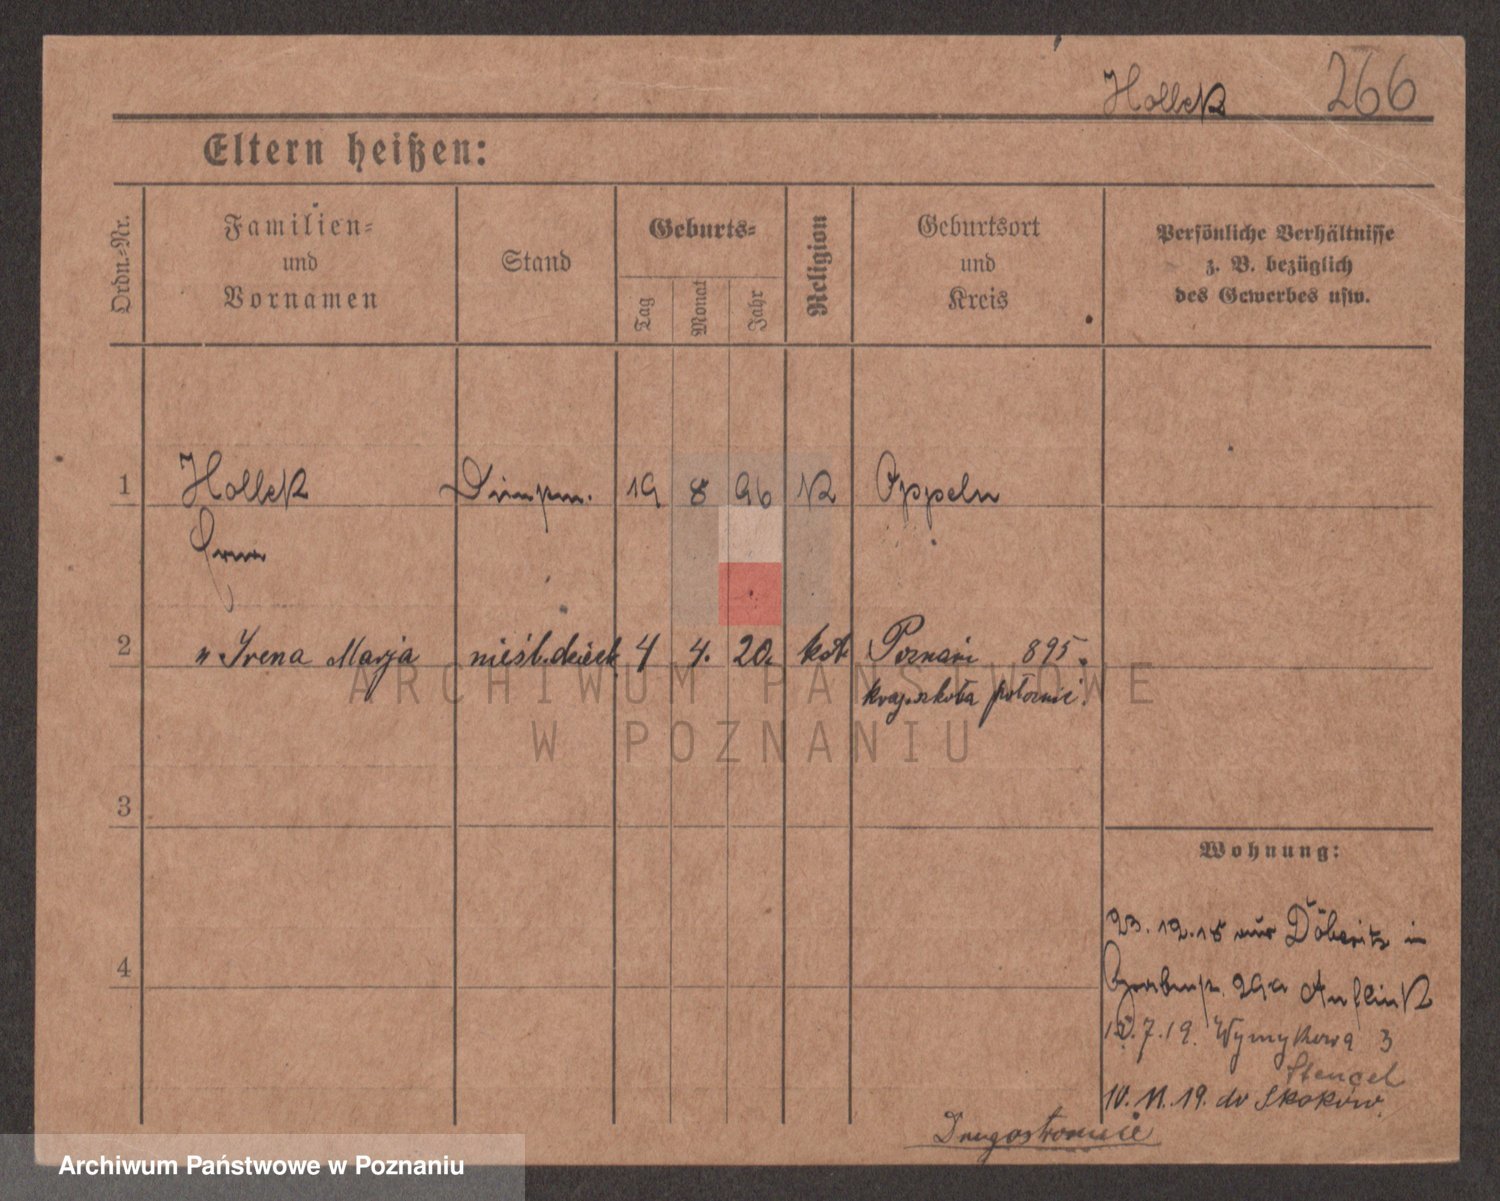 Holleck 266
Eltern heißen:
Ordn.-Nr.
Familien-
und
Vornamen
Stand
Geburts-
Tag
Monat
Jahr
Religion
Geburtsort
und
Kreis
Persönliche Verhältnisse
z. B. bezüglich
des Gewerbes usw.
1 Holleck 19 8 96 K Oppeln
2 " Irena Marja nieśl. dzieck 4 4. 20. kat Poznań 895.
ARCHIWUM PAŃSTWOWE
W POZNANIU
3
Wohnung:
23.12.18 aus Döberitz in
4
29a
7.19. Wymykowa 3
Stencel
10.11.19. do Skoków.
Drugostronnie
Archiwum Państwowe w Poznaniu